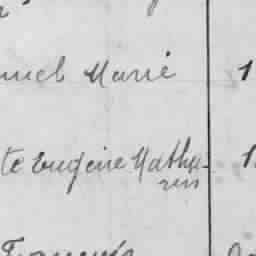 nuel Marie 1
te Eugène Mathu-
rin
François